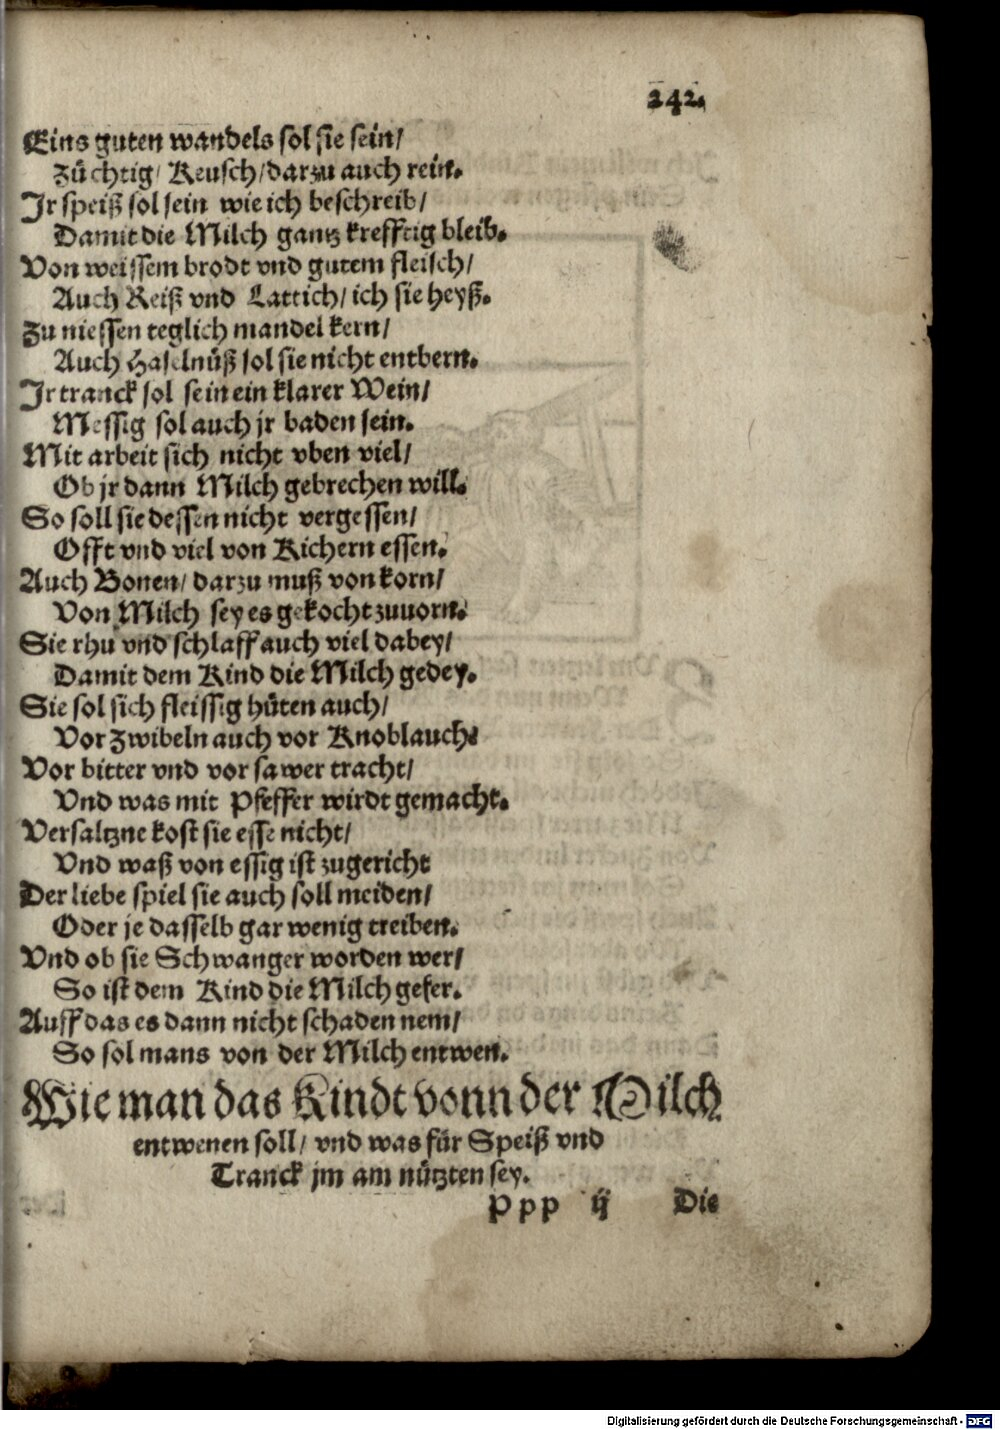 242.
Eins guten wandels sol sie sein/
Züchtig/ Keusch/darzu auch rein.
Jr speiß sol sein wie ich beschreib/
Damit die Milch gantz krefftig bleib.
Von weissem brodt vnd gutem fleisch/
Auch Reiß vnd Lattich/ ich sie heyß.
Zu niessen teglich mandel kern/
Auch Haselnüß sol sie nicht entbern.
Jr tranck sol sein ein klarer Wein/
Messig sol auch jr baden sein.
Mit arbeit sich nicht vben viel/
Ob jr dann Milch gebrechen will.
So soll sie dessen nicht vergessen/
Offt vnd viel von Kichern essen.
Auch Bonen/ darzu muß von korn/
Von Milch sey es gekocht zuuorn.
Sie rhu vnd schlaff auch viel dabey/
Damit dem Kind die Milch gedey.
Sie sol sich fleissig hüten auch/
Vor Zwibeln auch vor Knoblauch.
Vor bitter vnd vor sawer tracht/
Vnd was mit Pfeffer wirdt gemacht.
Versaltzne kost sie esse nicht/
Vnd waß von essig ist zugericht
Der liebe spiel sie auch soll meiden/
Oder je dasselb gar wenig treiben.
Vnd ob sie Schwanger worden wer/
So ist dem Kind die Milch gefer.
Auff das es dann nicht schaden nem/
So sol mans von der Milch entwen.
Wie man das Kindt vonn der Milch
entwenen soll/ vnd was für Speiß vnd
Tranck jm am nützten sey.
Ppp ij Die
Digitalisierung gefördert durch die Deutsche Forschungsgemeinschaft - DFG